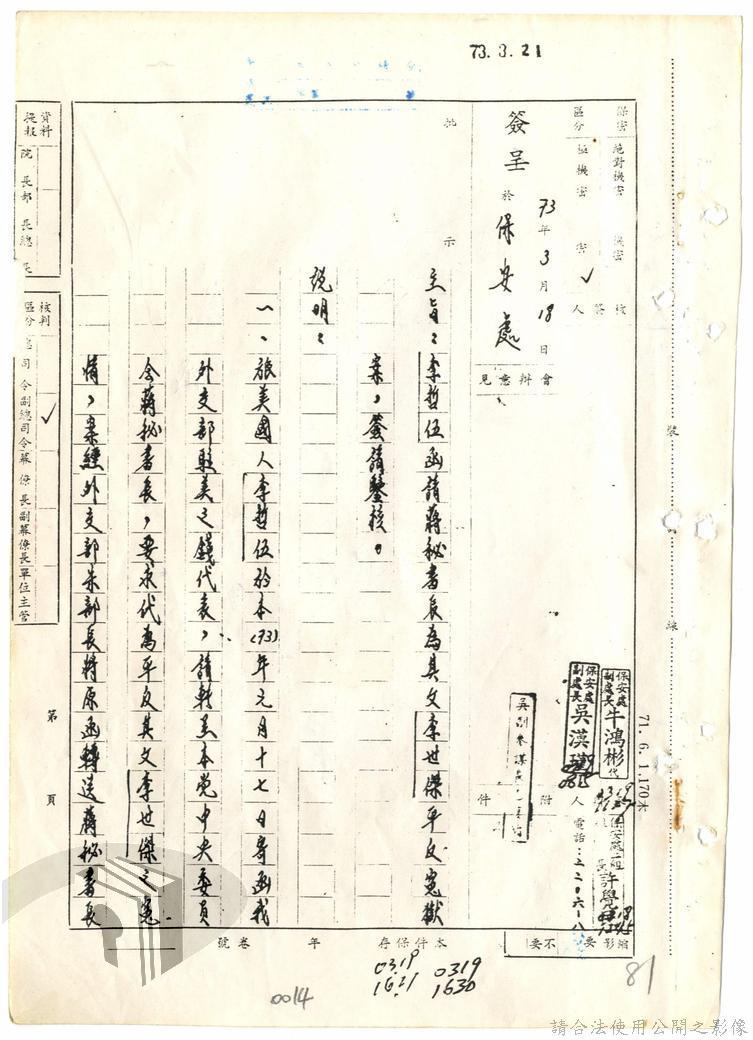 73.3.21
保密區分
絕對機密
極機密
機密
密 ✓
簽呈 73年3月18日 於保安處
會辦意見
批示
主旨：李哲伍函請蔣秘書長為其父李世傑平反冤獄
案，簽請鑒核。
說明：
一、旅美國人李哲伍於本(73)年元月十七日寄函我
外交部駐美之錢代表，請轉呈本党中央委員
会蔣秘書長，要求代為平反其父李世傑之冤
情，案經外交部朱部長將原函轉送蔣秘書長
保安處副處長牛鴻彬代
保安處副處長吳漢
許學
人電話：二二〇六一八
附件
71.6.1.170本
裝
線
縮影 要 不要
本件保存 年
卷號
0319
1621
0319
1630
81
0014
第 頁
資料提報
院長
部長
總長
核判區分
總司令
副總司令
幕僚長
副幕僚長
單位主管
請合法使用公開之影像